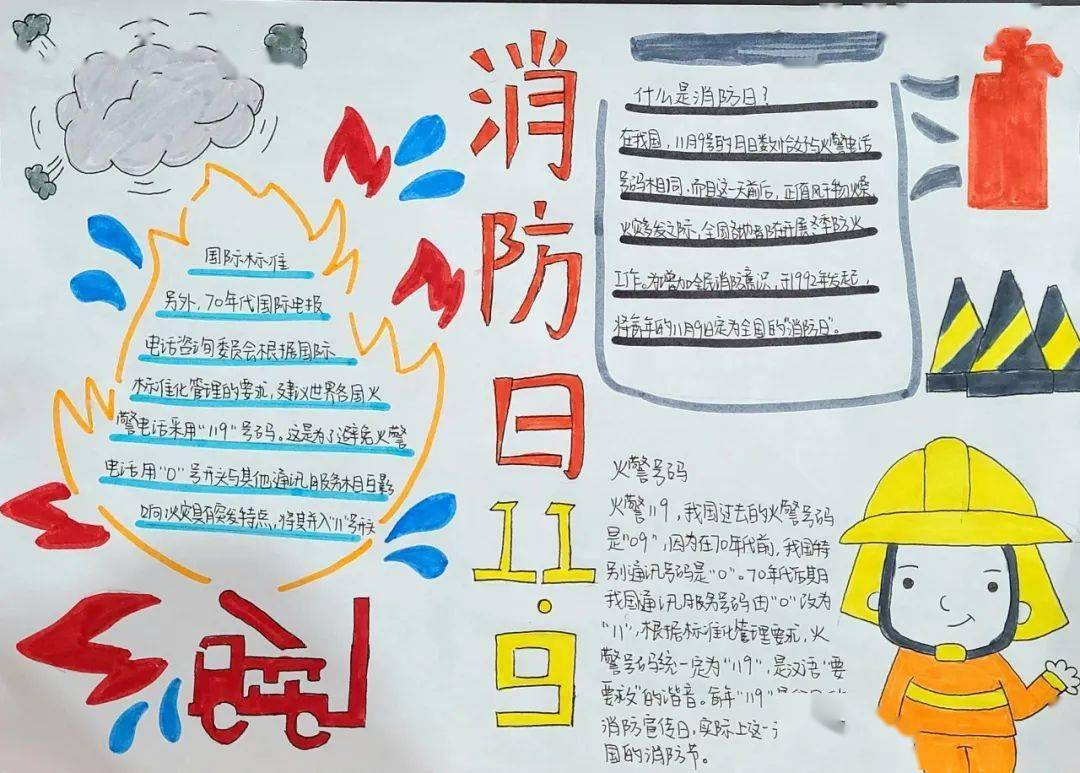 消防日
11·9
国际标准
另外，70年代国际电报
电话咨询委员会根据国际
标准化管理的要求，建议世界各国火
警电话采用"119"号码。这是为了避免火警
电话用"0"号开头与其他通讯服务相互影
响火灾具有突发特点，将其并入"11"号开头
什么是消防日？
在我国，11月9号的月日数恰好与火警电话
号码相同，而且这一天前后，正值风干物燥，
火灾多发之际，全国各地都在开展冬季防火
工作。为增加全民消防意识，于1992年发起，
将每年的11月9日定为全国的"消防日"。
火警号码
火警119，我国过去的火警号码
是"09"，因为在70年代前，我国特
别通讯号码是"0"。70年代后期日
我国通讯服务号码由"0"改为
"11"，根据标准化管理要求，火
警号码统一定为"119"，是汉语'要
要救'的谐音。每年"119"
消防宣传日，实际上这一
国的消防节。